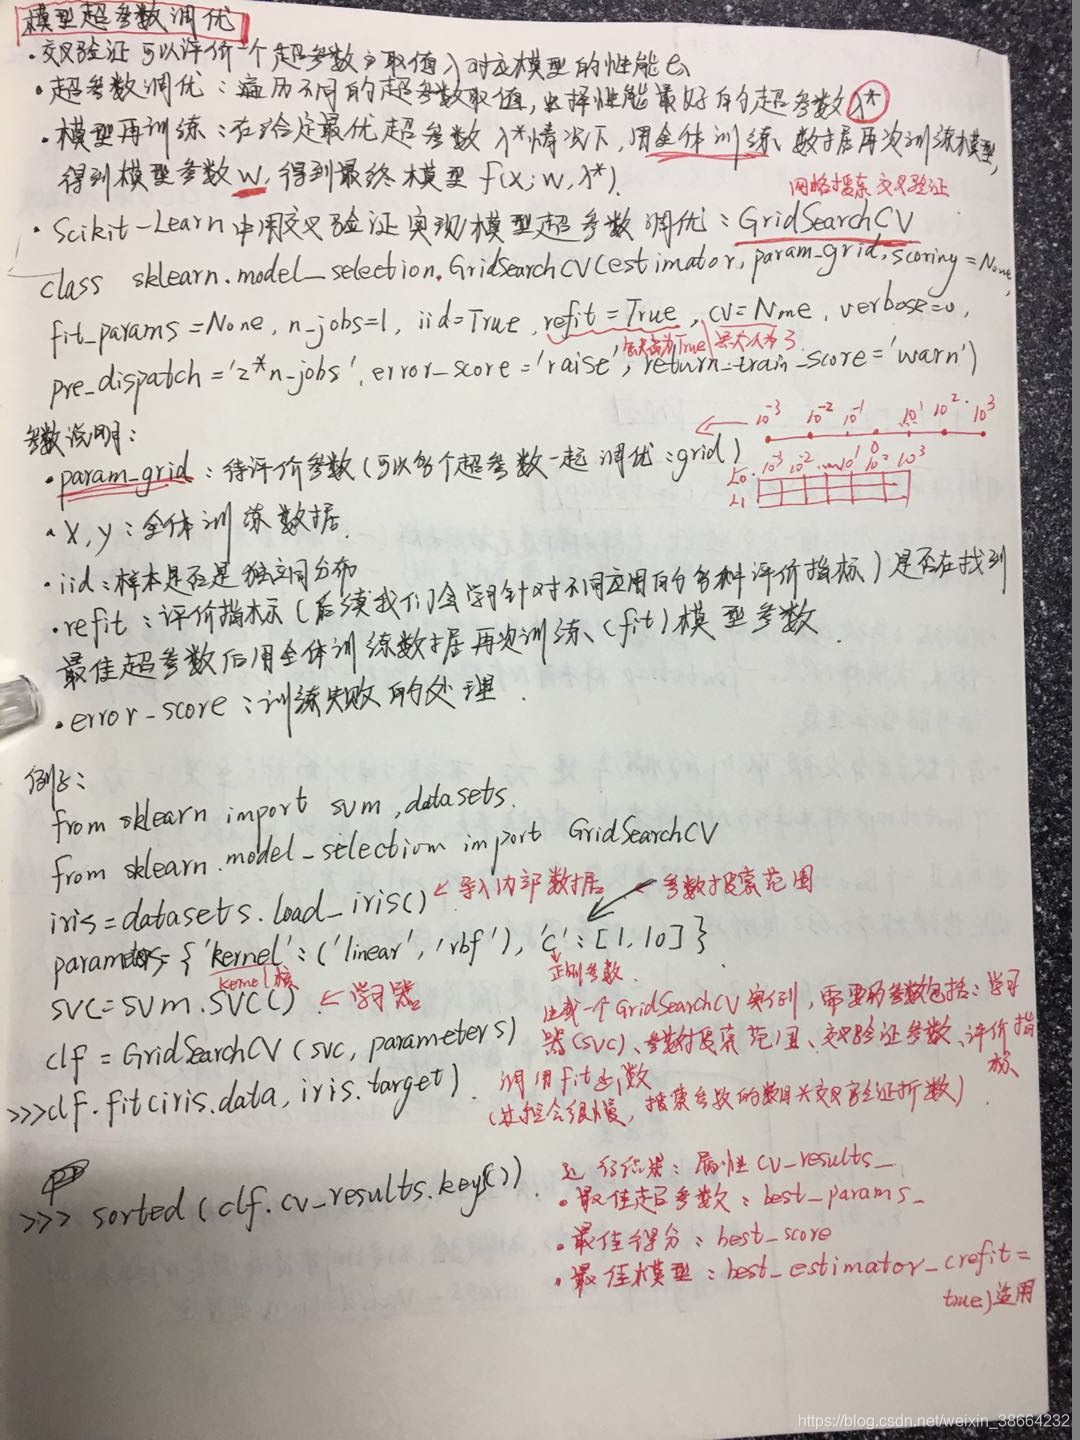 模型超参数调优
·交叉验证可以评价一个超参数的取值λ对应模型的性能
·超参数调优：遍历不同的超参数取值，选择性能最好的超参数λ*
·模型再训练：在给定最优超参数λ*情况下，用全体训练数据再次训练模型，
得到模型参数W，得到最终模型 f(X;W,λ*).
网格搜索 交叉验证
·Scikit-Learn中用交叉验证实现模型超参数调优：GridSearchCV
class sklearn.model_selection.GridSearchCV(estimator, param_grid, scoring=None,
fit_params=None, n_jobs=1, iid=True, refit=True, cv=None, verbose=0,
缺省为True
pre_dispatch='2*n-jobs', error_score='raise', return_train_score='warn')
10^-3 10^-2 10^-1 0 10^1 10^2 10^3
参数说明：
·param_grid：待评价参数(可以多个超参数一起调优：grid)
L0 10^-3 10^-2 10^1 10^2 10^3
L1
·X,y：全体训练数据
·iid：样本是否是独立同分布
·refit：评价指标(后续我们会学习针对不同应用的各种评价指标)是否在找到
最佳超参数后用全体训练数据再次训练(fit)模型参数
·error-score：训练失败的处理
例子：
from sklearn import svm, datasets.
from sklearn.model_selection import GridSearchCV
iris=datasets.load_iris() ←导入内部数据 参数搜索范围
parameters={'kernel':('linear','rbf'),'C':[1,10]}
kernel核 正则参数
svc=svm.SVC() ←学习器
生成一个GridSearchCV实例，需要的参数包括：学习
器(SVC)、参数搜索范围、交叉验证参数、评价指标
clf=GridSearchCV(svc, parameters)
>>>clf.fit(iris.data, iris.target)
调用fit函数
(过程会很慢，搜索参数的数目×交叉验证折数)
>>> sorted(clf.cv_results.keys())
运行结果：属性cv_results_
·最佳超参数：best_params_
·最佳得分：best_score
·最佳模型：best_estimator_(refit=
true)适用
https://blog.csdn.net/weixin_38664232